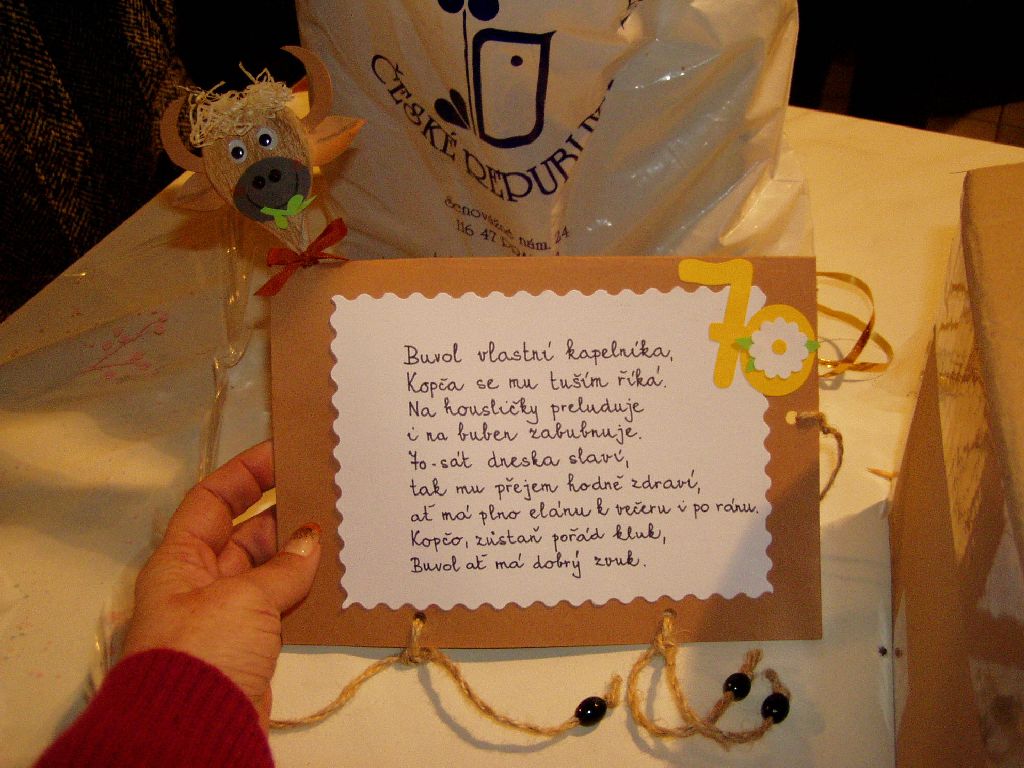 ČESKÉ REPUBLIKY
Senovážné nám. 24
116 47
70
Buvol vlastní kapelníka,
Kopča se mu tuším říká.
Na housličky preluduje
i na buben zabubnuje.
70-sát dneska slaví,
tak mu přejem hodně zdraví,
ať má plno elánu k večeru i po ránu.
Kopčo, zůstaň pořád kluk,
Buvol ať má dobrý zvuk.